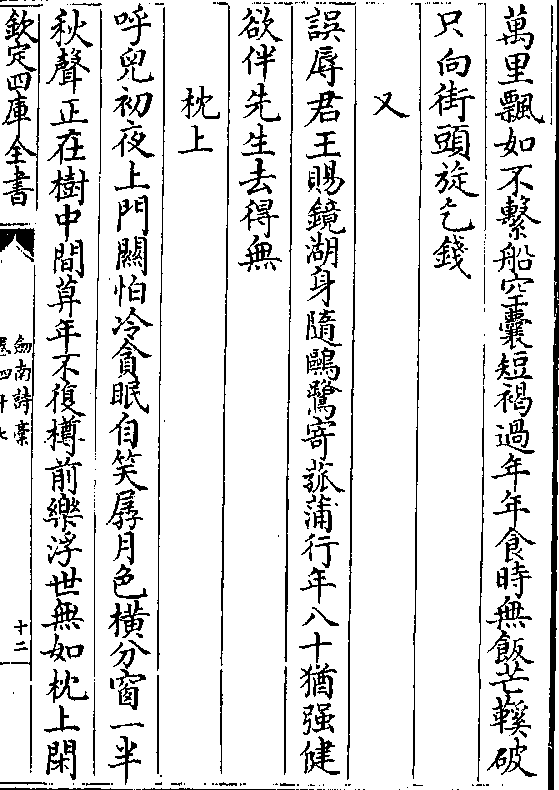 萬里飄如不繫船空囊短褐過年年食時無飯芒鞵破
只向街頭旋乞錢
又
誤辱君王賜鏡湖身隨鷗鷺寄菰蒲行年八十猶强健
欲伴先生去得無
枕上
呼兒初夜上門關怕冷貪眠自笑孱月色橫分窗一半
秋聲正在樹中間算年不復樽前樂浮世無如枕上閑
欽定四庫全書
劒南詩稾
卷四十七
十二